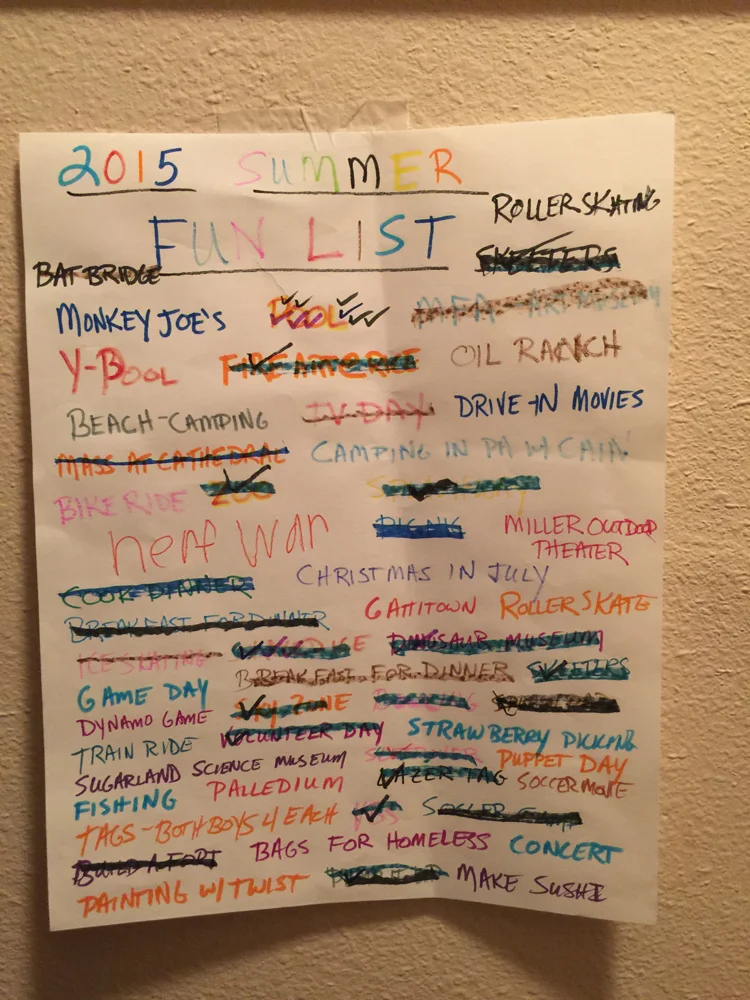 2015 SUMMER
ROLLERSKATING
FUN LIST SKEETERS
BAT BRIDGE
MONKEY JOE'S POOL MFA - ART
Y-BOOL OIL RANCH
BEACH-CAMPING TV DAY DRIVE-IN MOVIES
MASS AT CATHEDRAL CAMPING IN PA W/ CAIN
BIKE RIDE ZOO
nerf War PICNIC MILLER OUTDOOR
THEATER
COOK DINNER CHRISTMAS IN JULY
BREAKFAST FOR DINNER GATTITOWN ROLLERSKATE
ICE SKATING DINOSAUR MUSEUM
GAME DAY BREAKFAST FOR DINNER SKEETERS
DYNAMO GAME SKY ZONE
TRAIN RIDE VOLUNTEER DAY STRAWBERRY PICKING
SUGARLAND SCIENCE MUSEUM SLEEPOVER PUPPET DAY
FISHING PALLEDIUM LAZER TAG SOCCER MOVIE
TAGS - BOTH BOYS 4 EACH VBS SOCCER CAMP
BUILD A FORT BAGS FOR HOMELESS CONCERT
PAINTING W/ TWIST MAKE SUSHI